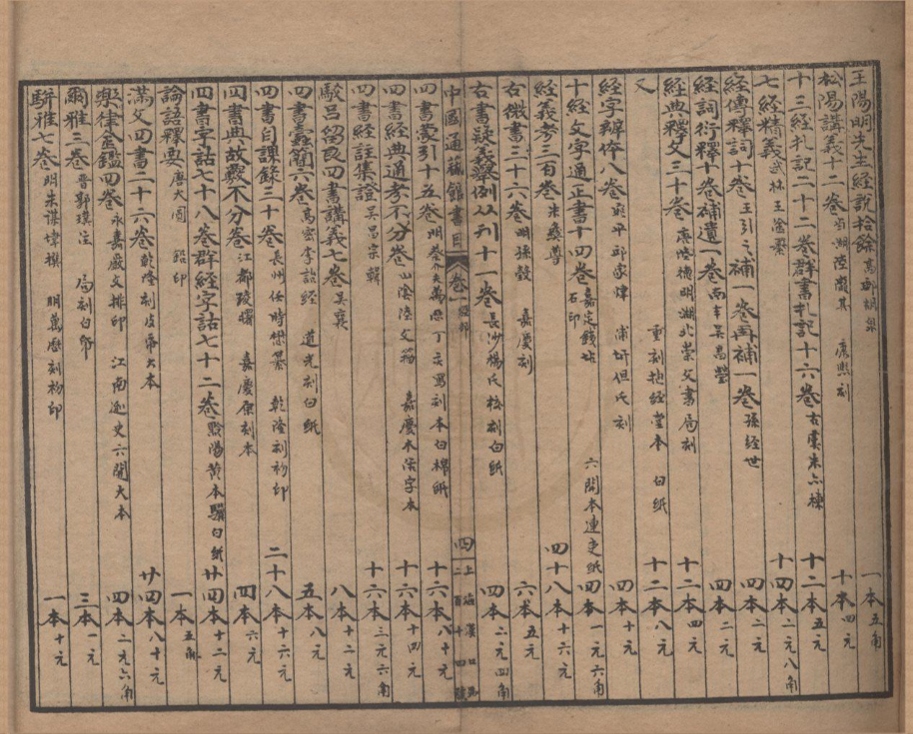 王陽明先生經說拾餘 高郵胡泉 一本 五角
松陽講義十二卷 當湖陸隴其 康熙刻 十本 四元
十三經札記二十二卷群書札記十六卷 古虞朱亦棟 十二本 五元
七經精義 武林王淦纂 十四本 二元八角
經傳釋詞十卷 王引之 補一卷再補一卷 孫經世 四本 二元
經詞衍釋十卷補遺一卷 南丰吳昌瑩 四本 二元
經典釋文三十卷 唐陸德明 湖北崇文書局刻 十二本 四元
又 重刻抱經堂本 白紙 十二本 八元
經字辨体八卷 邱家煒 但氏刻 四本 十元
十經文字通正書十四卷 嘉定錢坫 石印 六開本連史紙 四本 一元六角
經義考三百卷 朱彝尊 四十八本 十六元
古微書三十六卷 明孫瑴 嘉慶刻 六本 五元
古書疑義舉例丛刊十一卷 長沙楊氏校刻白紙 四本 二元四角
中國通藝館書目 卷一 經部 四 上海漢口路二百十四號
四書蒙引十五卷 明蔡 萬厯丁亥 刻本白棉紙 十六本 八十元
四書經典通考不分卷 山陰陸文籀 嘉慶木活字本 十六本 十四元
四書經註集證 吳昌宗輯 十六本 三元六角
駁呂留良四書講義七卷 吳襄 八本 十二元
四書蠹簡六卷 高密李詒經 道光刻白紙 五本 八元
四書自課錄三十卷 長州任時懋纂 乾隆刻初印 二十八本 十六元
四書典故覈不分卷 江都凌曙 嘉慶原刻本 四本 六元
四書字詁七十八卷群經字詁七十二卷 黔陽黄本驥白紙 廿四本 十二元
論語釋奧 唐大圓 鉛印 一本 五角
滿文四書二十六卷 乾隆刻皮帋大本 廿四本 八十元
樂律金鑑四卷 永嘉嚴文排印 江南連史六開大本 四本 二元六角
爾雅三卷 晉郭璞注 局刻白帋 三本 一元
駢雅七卷 明朱謀㙔撰 明萬厯刻初印 一本 十元